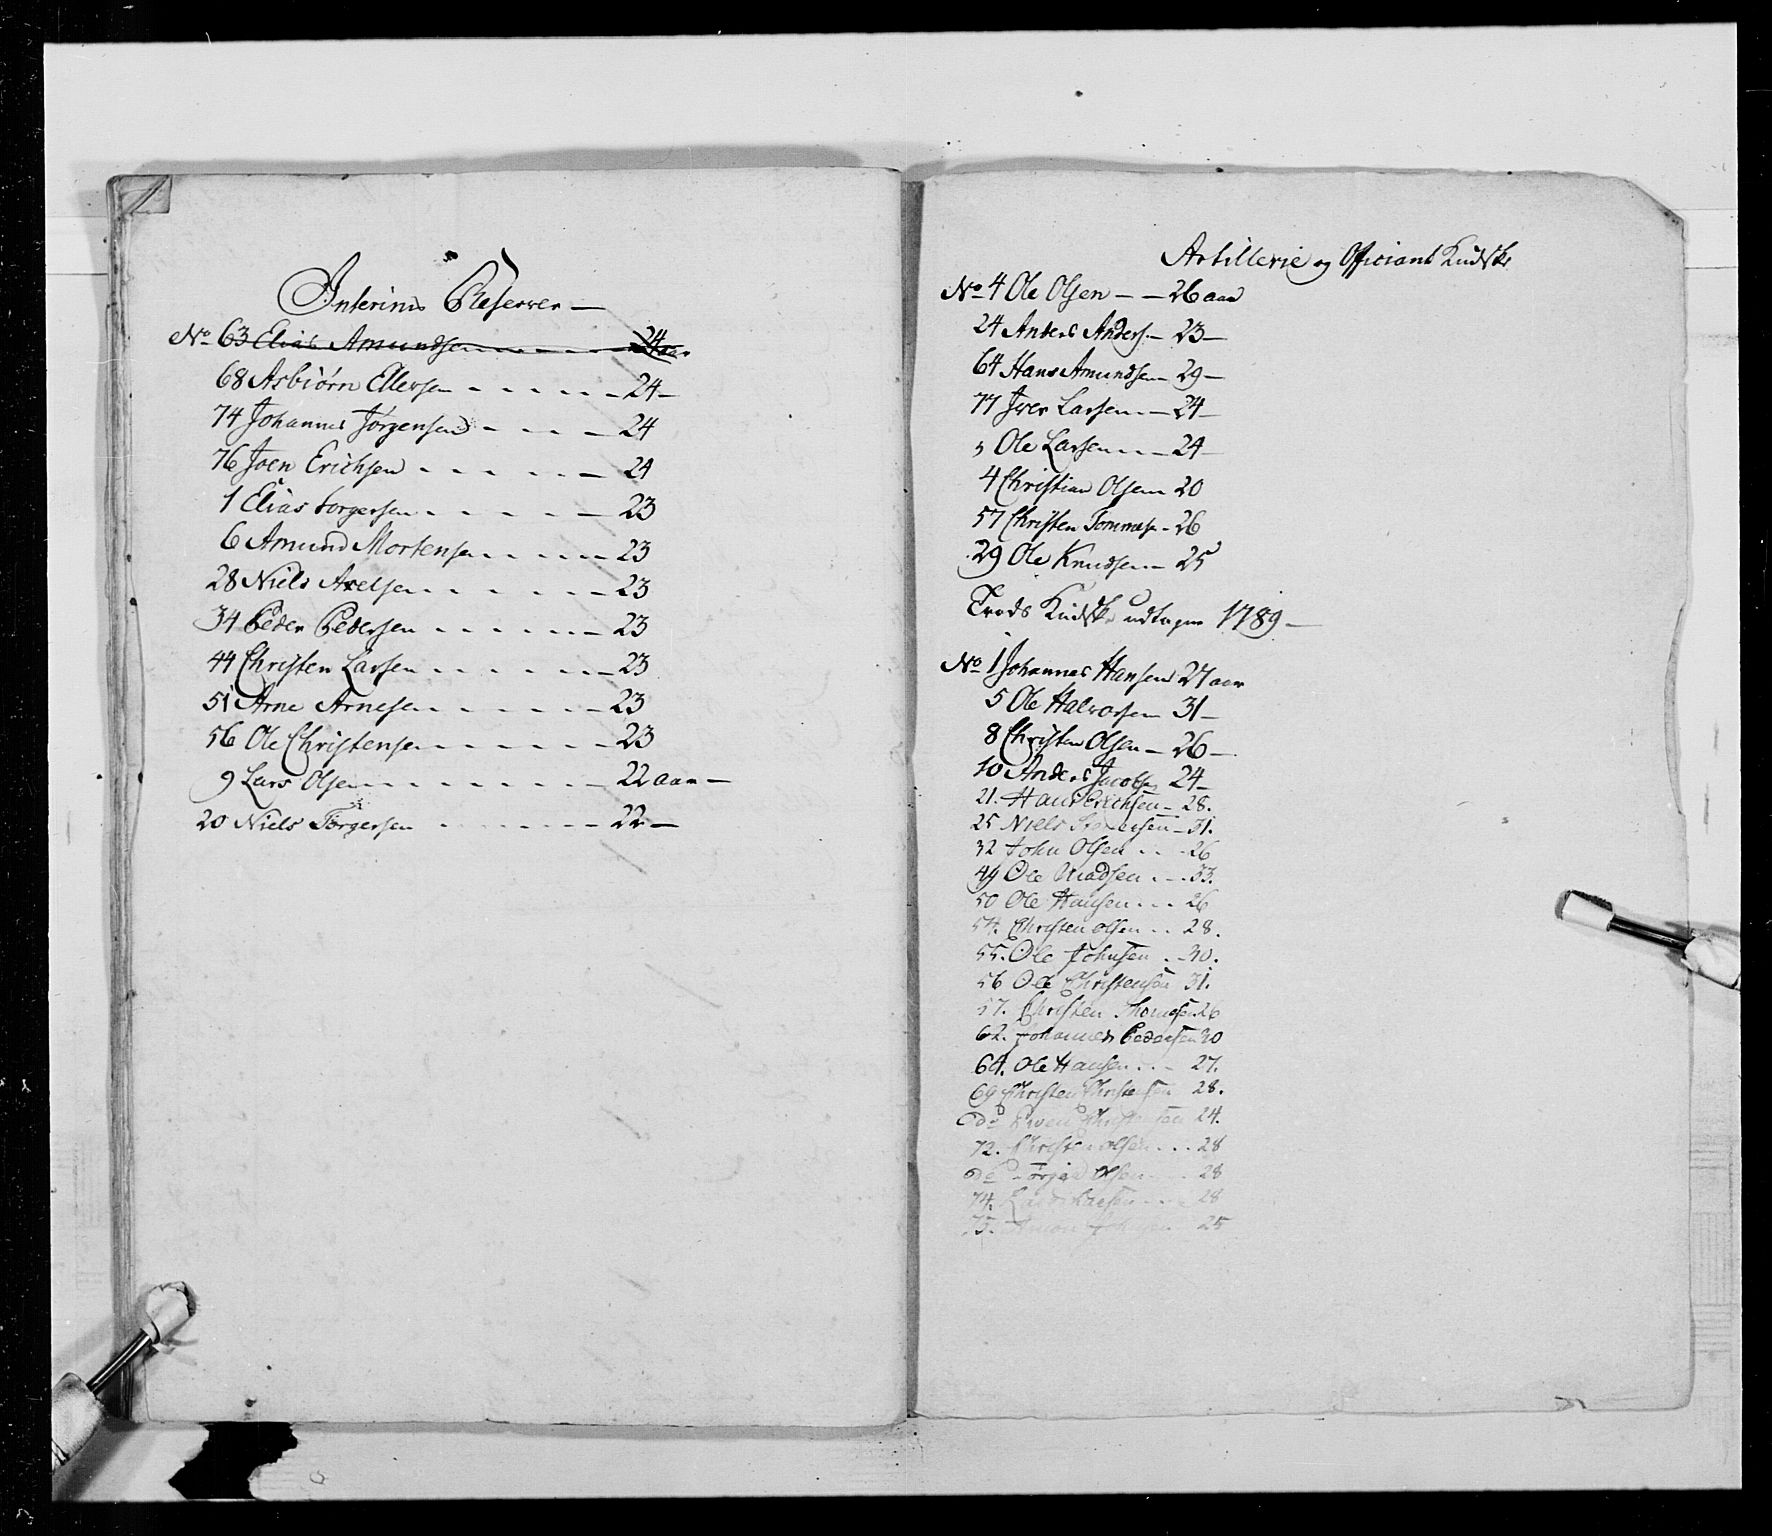 Interims Reserver —
No 63 Elias Amundsen - - - - 24 aar
68 Asbiørn Ellersen - - - - - - 24 -
74 Johannes Jørgensen - - - - 24
76 Joen Erichsen - - - - - - 24
1 Elias Torgersen - - - - - - 23
6 Amund Mortensen - - - - - 23
28 Niels Axelsen - - - - - - 23
34 Peder Pedersen - - - - - - 23
44 Christen Larsen - - - - - - 23
51 Arne Arnesen - - - - - - 23
56 Ole Christensen - - - - - - 23
9 Lars Olsen - - - - - - - 22 aar —
20 Niels Torgersen - - - - - - - 22 —
Artillerie og Officiant Kudske
No 4 Ole Olsen - - 26 aar
24 Anders Anders. - 23 -
64 Hans Amundsen - 29 -
77 Iver Larsen - - 24 -
5 Ole Larsen - - - 24 -
4 Christian Olsen 20
57 Christen Tommes. - 26
29 Ole Knudsen - 25
Trods Kudske udtagne 1789 -
No 1 Johannes Hansen 27 aar
5 Ole Halvorsen 31 -
8 Christen Olsen - 26 -
10 Anders Jacobsen 24 -
21. Hans Erichsen - 28.
25 Niels - 31.
32 John Olsen - - - 26
49 Ole Madsen - - - 33.
50 Ole Hansen - - - 26
54. Christen Olsen - - 28.
55. Ole Johnsen - 30.
56 Ole Christensen 31.
57. Christen Thomesen 26
62. Johannes Pedersen 30
64. Ole Hansen - - - 27.
69 Christen Christensen 28.
do Christensen 24.
72. Christen Olsen - - - 28
do Olsen - - 28
74. Larsen - - - 28
75. Johnsen 25